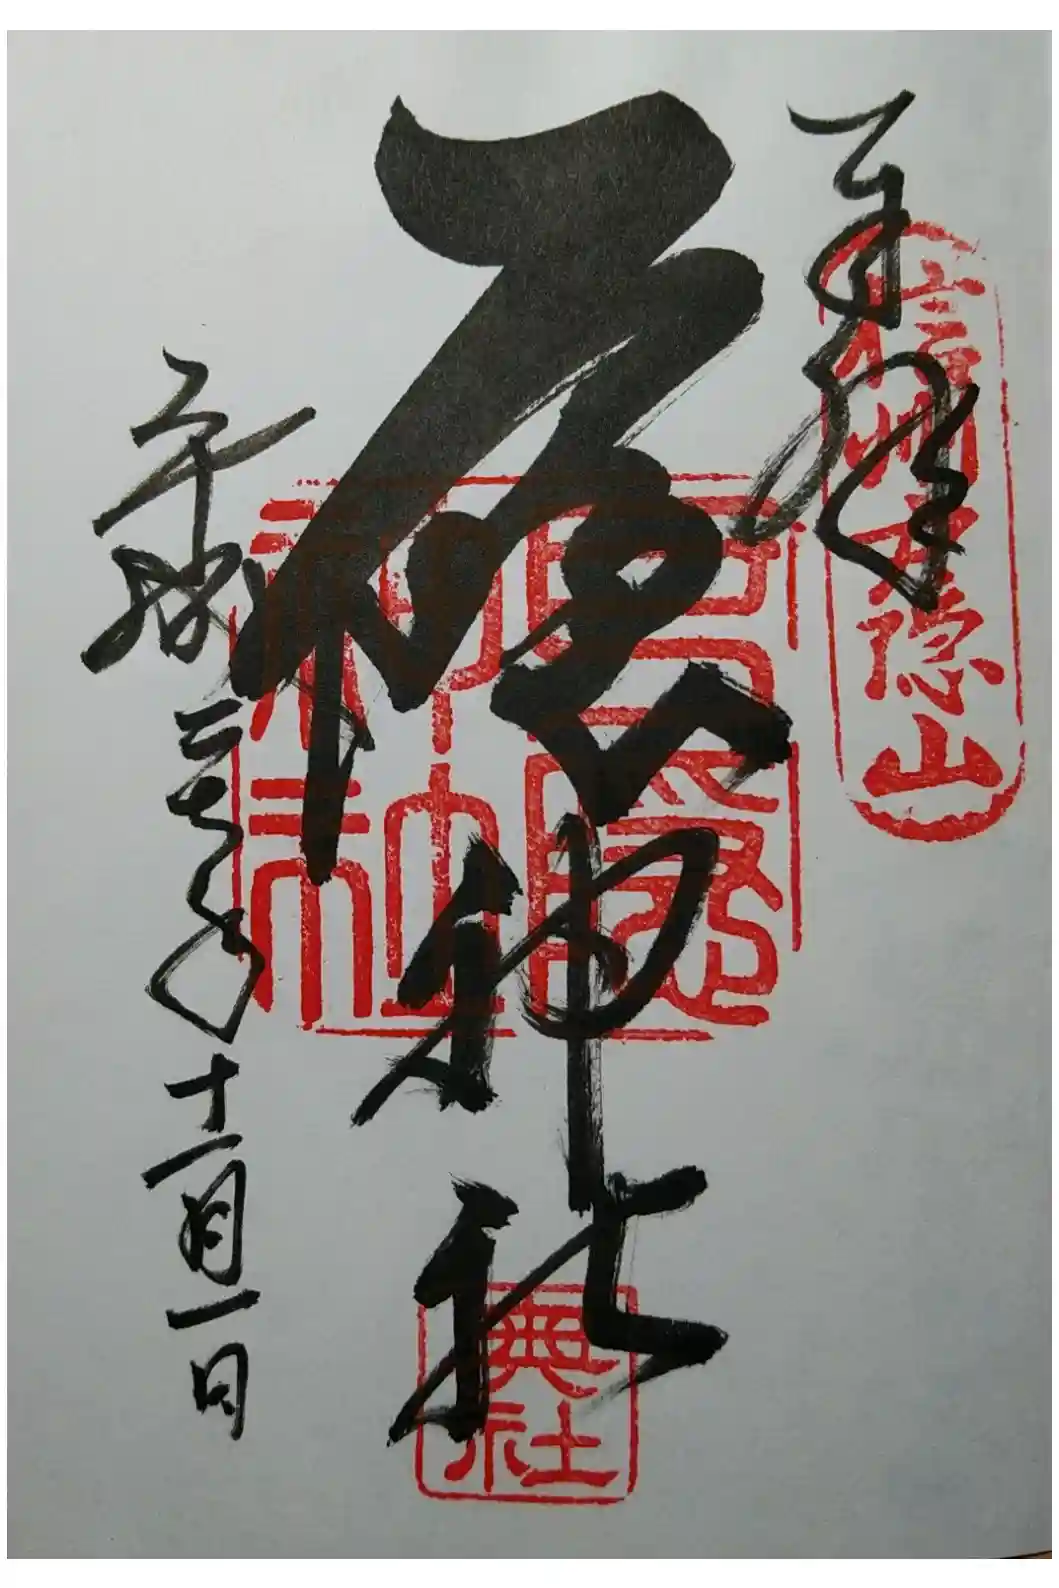 奉拝
信州戸隠山
戸隠神社
戸隠
神社
奥社
平成三十年十一月一日